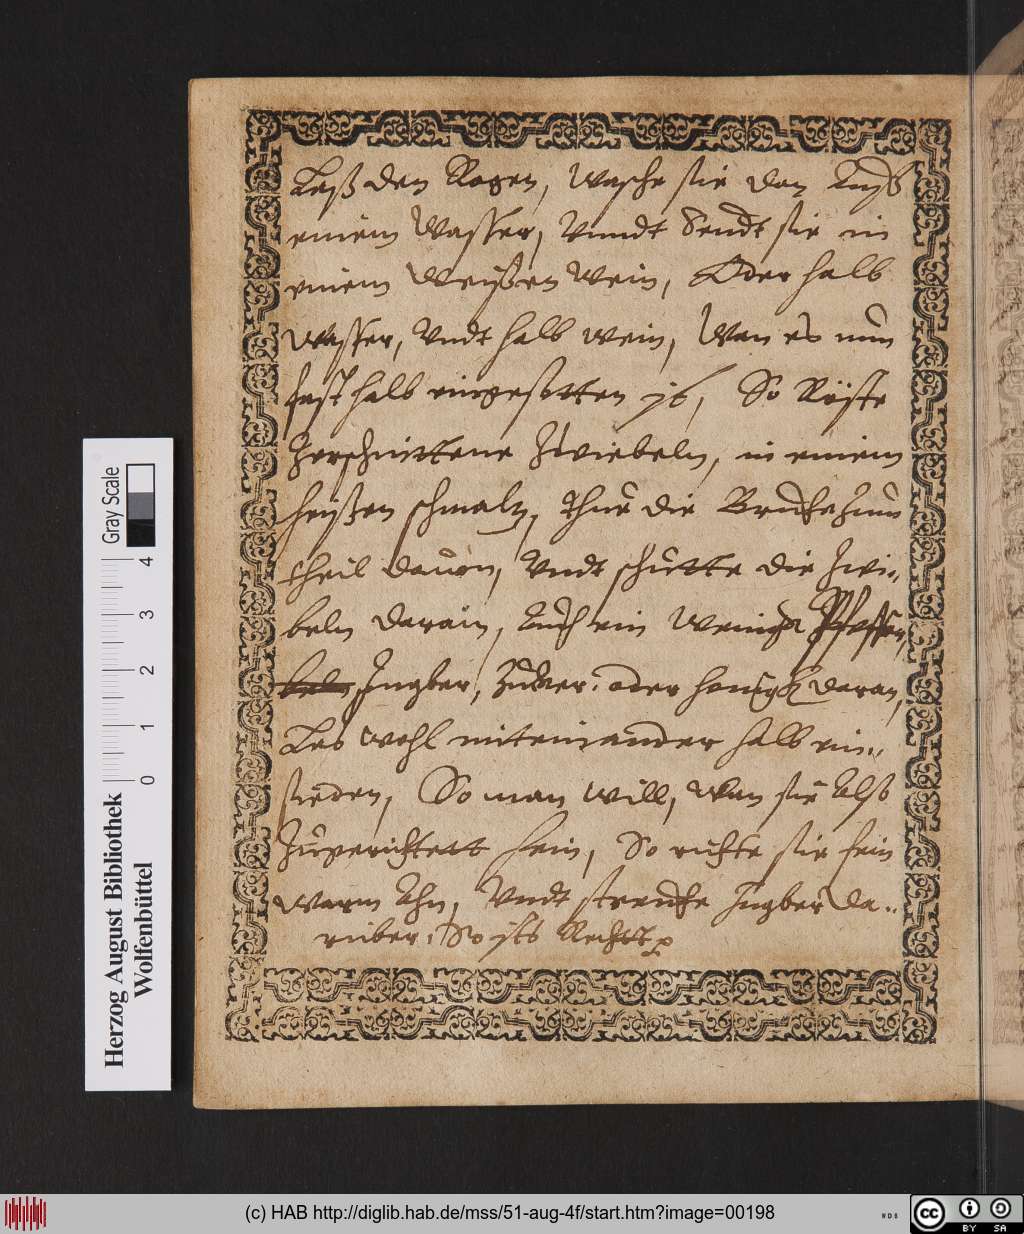 Laß den Rogen, Wasche sie dan Auß
einem Wasser, Vnndt Sendt sie in
einem Weyßen Wein, Oder halb
Wasser, Vndt halb wein, Wan es nun
fast halb eingesotten ist, So Röste
Zerschnittene Zwiebeln, in einem
heyßen schmaltz, Thue die Bruhe Zum
theil davon, Vndt schütte die Zwi-
beln darain, Auch ein Wenig Pfeffer,
Jngber, Zucker, oder honigh daran,
Las Wohl miteinander halb ein-
sieden, So man will, Wan sie Alß
Zugerichtett sein, So richte sie fein
warm Ahn, Vndt strewe Jngber da-
rüber, So ists Recht
Gray Scale
0 1 2 3 4
Herzog August Bibliothek
Wolfenbüttel
(c) HAB http://diglib.hab.de/mss/51-aug-4f/start.htm?image=00198
WDB
cc
BY SA